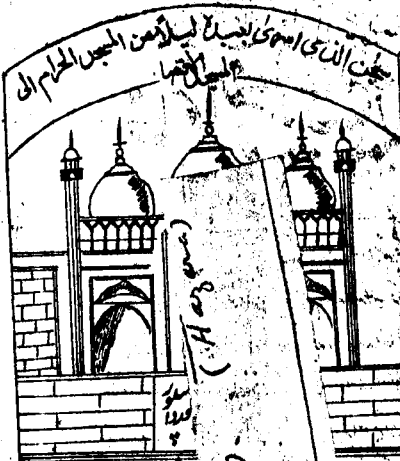 سبحٰن الذى اسرىٰ بعبده ليلاً من المسجد الحرام الى
المسجد الاقصا
(Hazara)